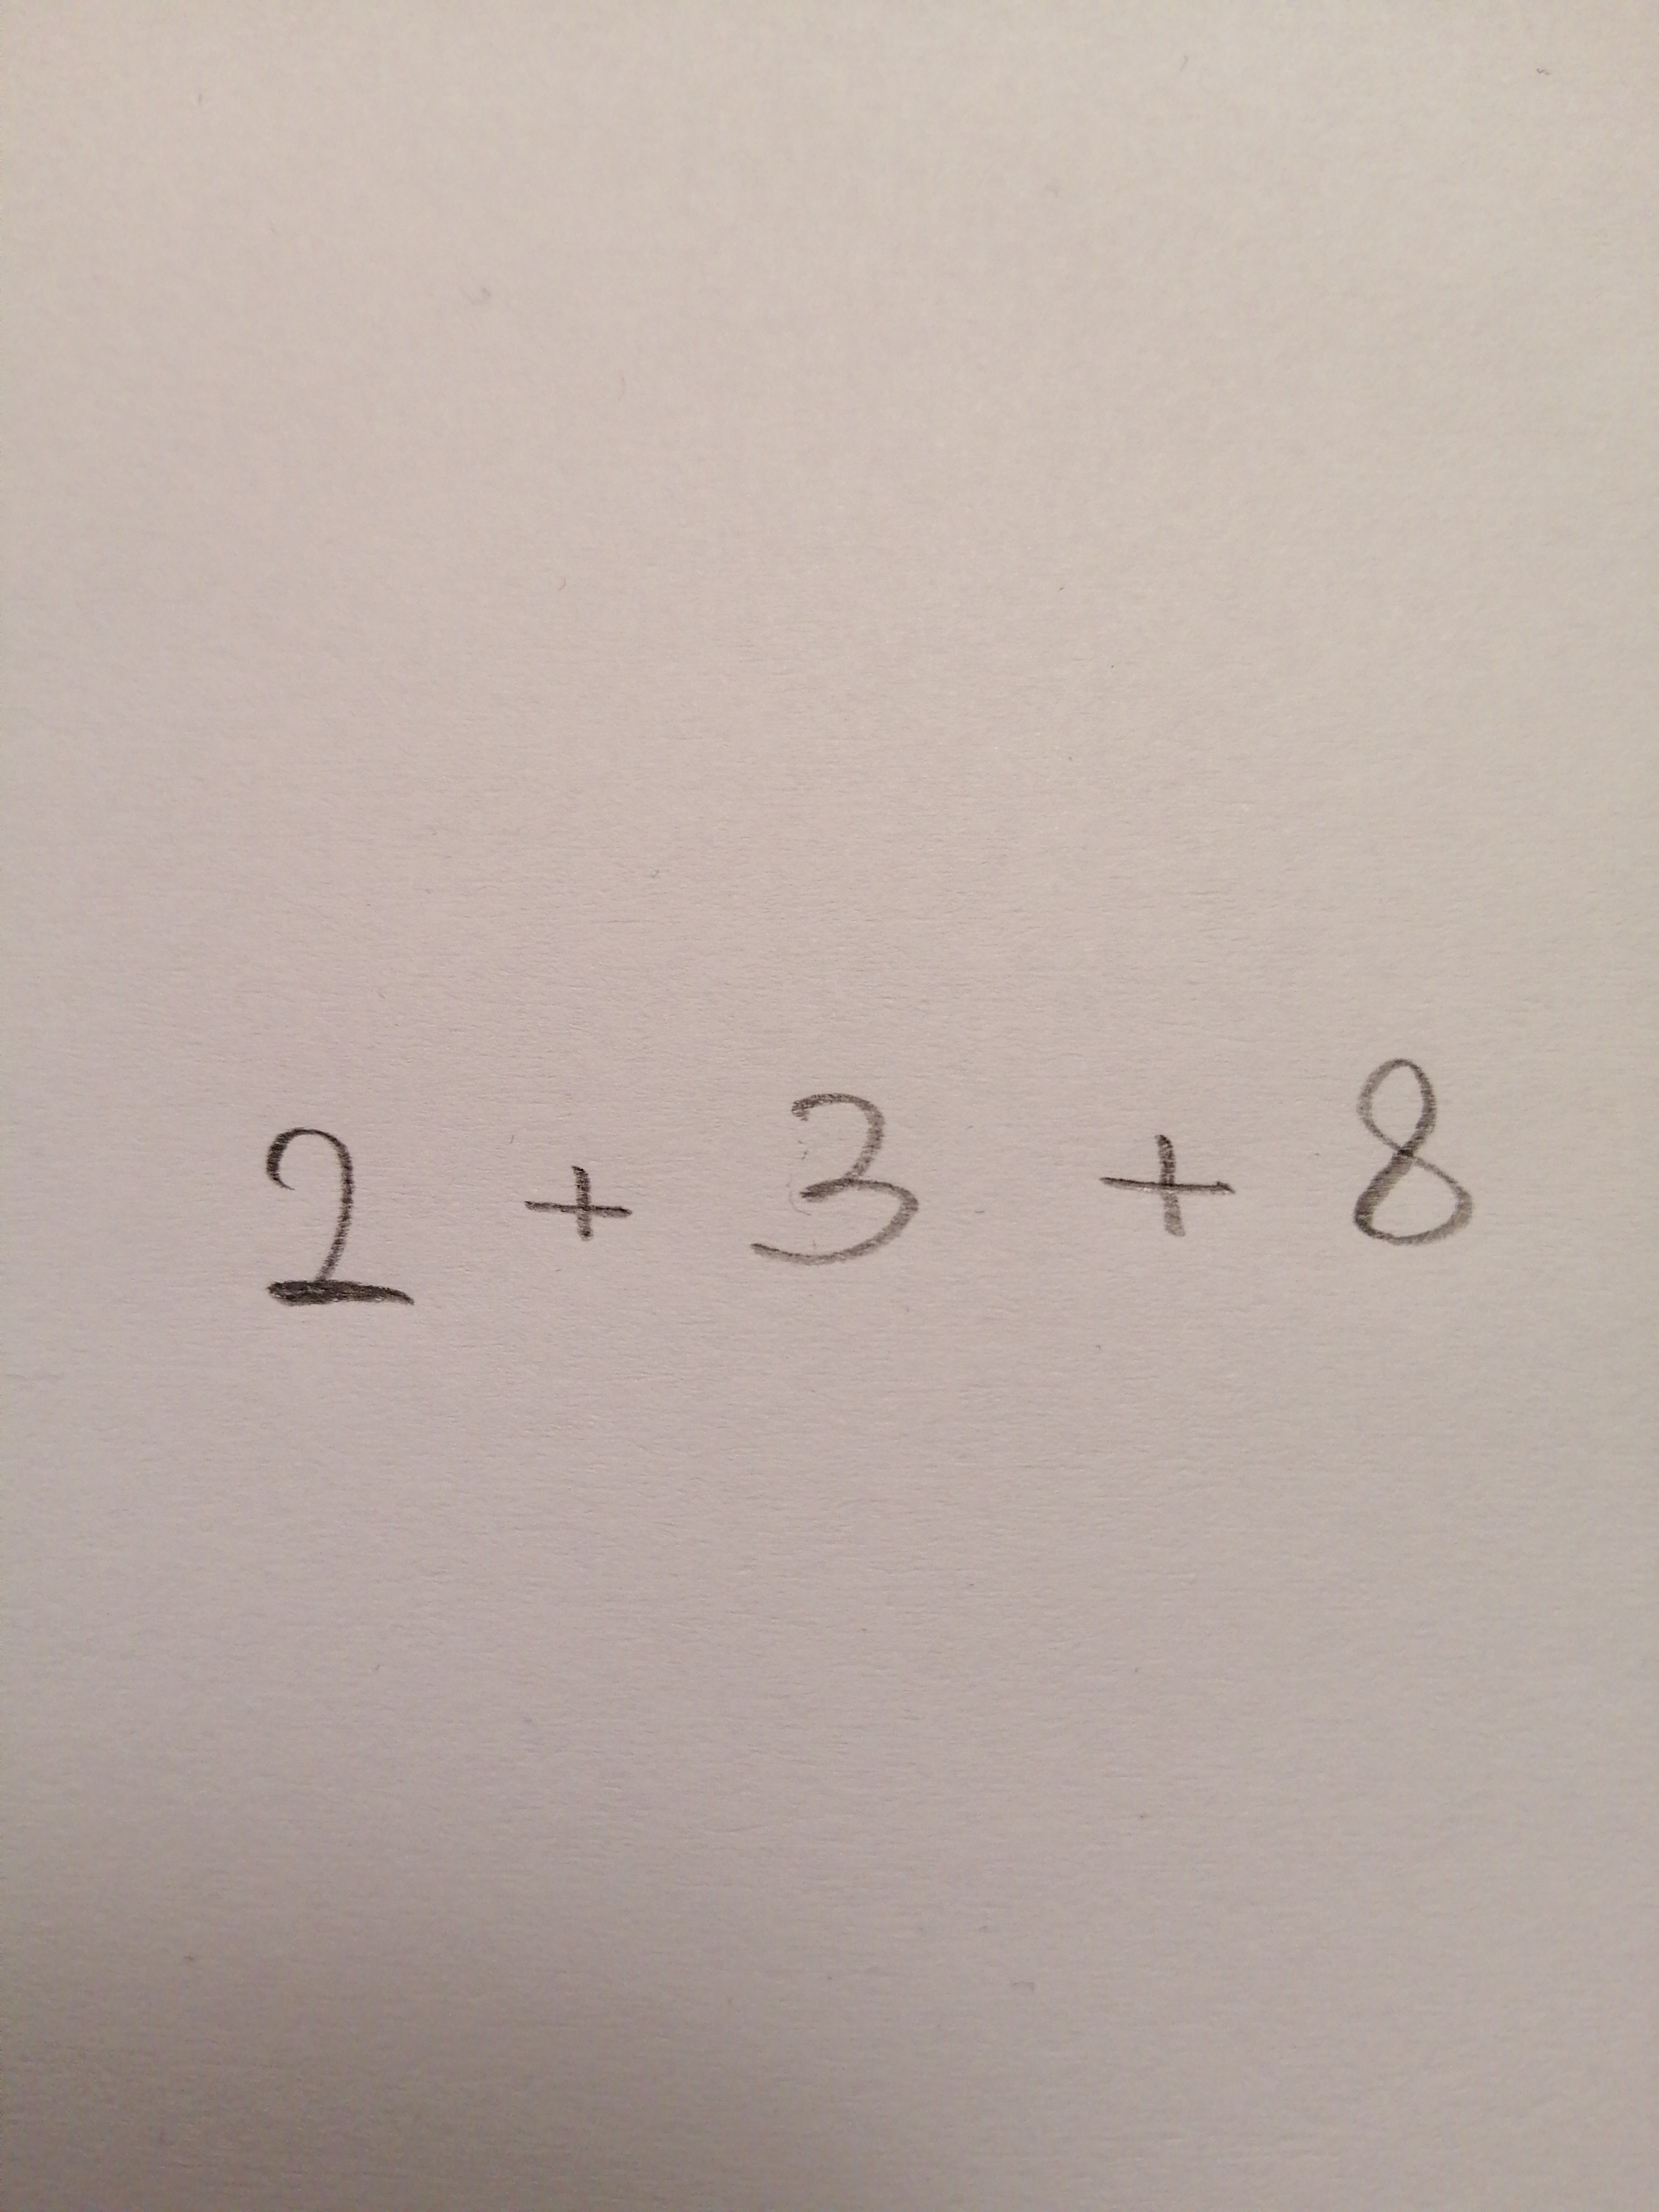 2 + 3 + 8